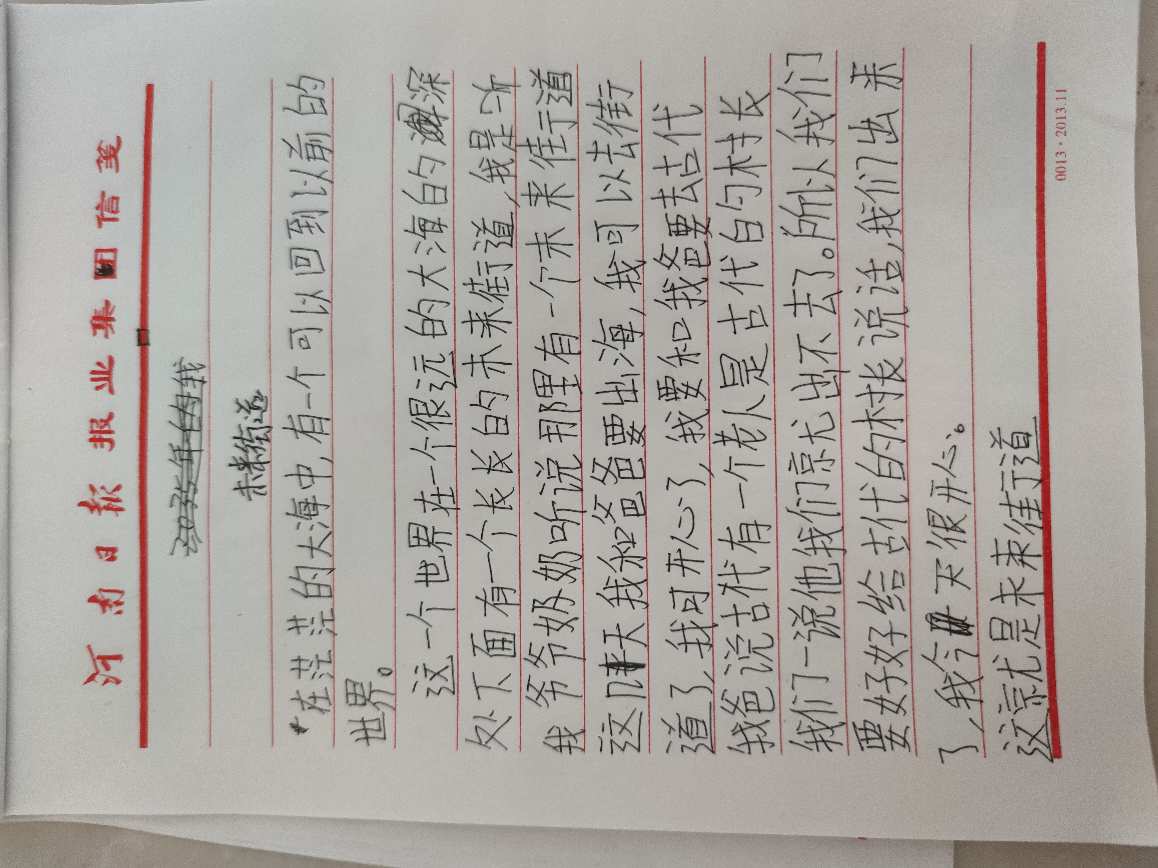 河南日报报业集团信笺
未来街道
在茫茫的大海中,有一个可以回到以前的
世界。
这一个世界在一个很远的大海的深
处下面有一个长长的未来街道,我是听
我爷爷奶奶听说那里有一个未来街道
这天我和爸爸要出海,我可以去街
道了,我可开心了,我要和我爸要去古代
我爸说古代有一个老人是古代的村长
我们一说他我们就出不去了。所以我们
要好好给古代的村长说话,我们出来
了,我今天很开心。
这就是未来街道
0013·2013.11